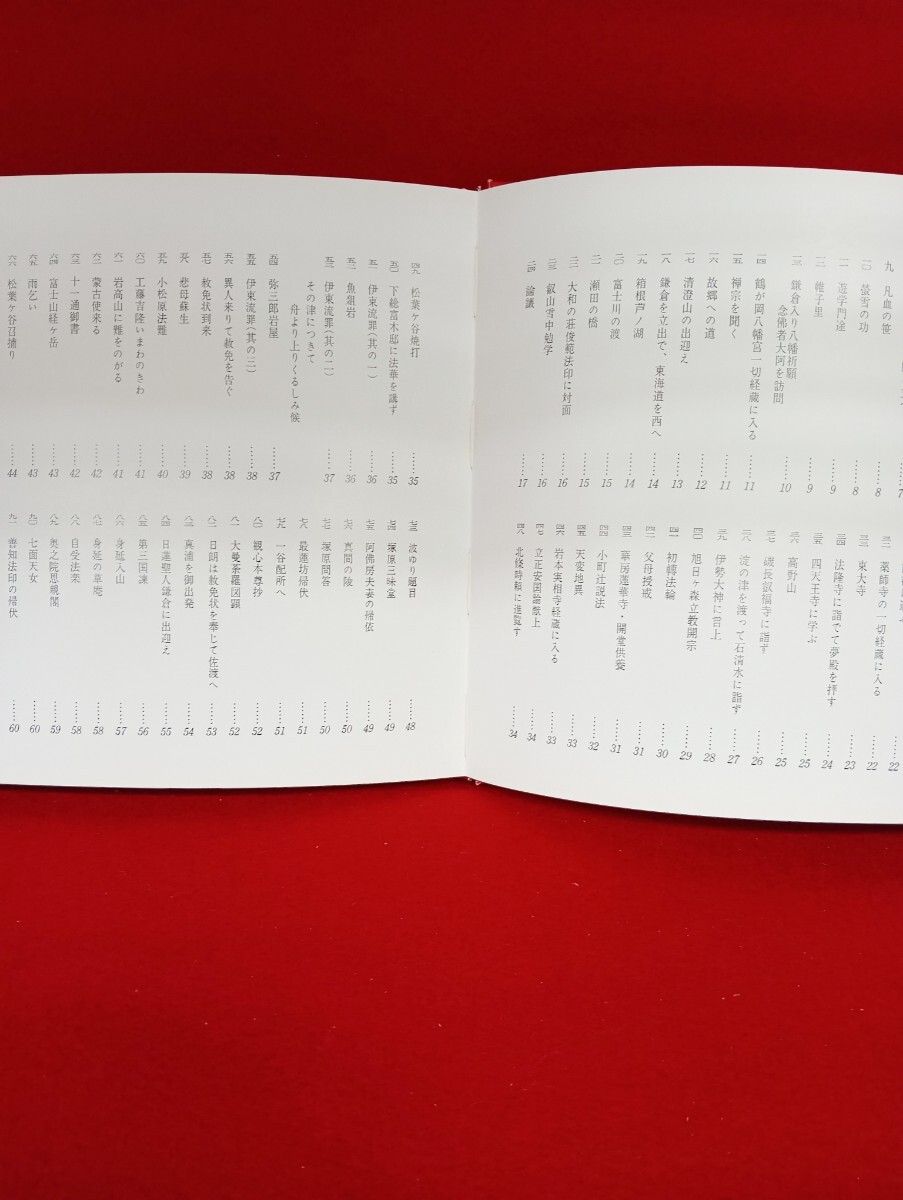 九 凡血の笹……8
一〇 蛍雪の功……8
一一 遊学門途……9
一二 帷子里……9
一三 鎌倉入り八幡祈願
念佛者大阿を訪問……10
一四 鶴が岡八幡宮一切経蔵に入る……11
一五 禅宗を聞く……11
一六 故郷への道……12
一七 清澄山の出迎え……13
一八 鎌倉を立出で、東海道を西へ……14
一九 箱根芦ノ湖……14
二〇 富士川の渡……15
二一 瀬田の橋……15
二二 大和の荘俊範法印に対面……16
二三 叡山雪中勉学……16
二四 論議……17
三二 薬師寺の一切経蔵に入る……22
三三 東大寺……23
三四 法隆寺に詣でて夢殿を拝す……24
三五 四天王寺に学ぶ……25
三六 高野山……25
三七 磯長叡福寺に詣ず……26
三八 淀の津を渡って石清水に詣ず……27
三九 伊勢大神に言上……28
四〇 旭日ヶ森立教開宗……29
四一 初轉法輪……30
四二 父母授戒……31
四三 華房蓮華寺・開堂供養……31
四四 小町辻説法……32
四五 天変地異……33
四六 岩本実相寺経蔵に入る……33
四七 立正安国論献上……34
四八 北條時頼に進覧す……34
四九 松葉ヶ谷焼打……35
五〇 下総富木邸に法華を講ず……35
五一 伊東流罪(其の一)……36
五二 魚俎岩……36
五三 伊東流罪(其の二)……37
その津につきて
舟より上りくるしみ候
五四 弥三郎岩屋……37
五五 伊東流罪(其の三)……38
五六 異人来りて赦免を告ぐ……38
五七 赦免状到来……38
五八 悲母蘇生……39
五九 小松原法難……40
六〇 工藤吉隆いまわのきわ……41
六一 岩高山に難をのがる……41
六二 蒙古使来る……42
六三 十一通御書……42
六四 富士山経ヶ岳……43
六五 雨乞い……43
六六 松葉ヶ谷召捕り……44
七三 波ゆり題目……48
七四 塚原三味堂……49
七五 阿佛房夫妻の帰依……49
七六 真間の陵……50
七七 塚原問答……50
七八 最蓮坊帰伏……51
七九 一谷配所へ……51
八〇 観心本尊抄……52
八一 大曼荼羅図顕……52
八二 日朗は赦免状を奉じて佐渡へ……53
八三 真浦を御出発……54
八四 日蓮聖人鎌倉に出迎え……55
八五 第三国諫……56
八六 身延入山……57
八七 身延の草庵……58
八八 自受法楽……58
八九 奥之院思親閣……59
九〇 七面天女……60
九一 善知法印の帰伏……60